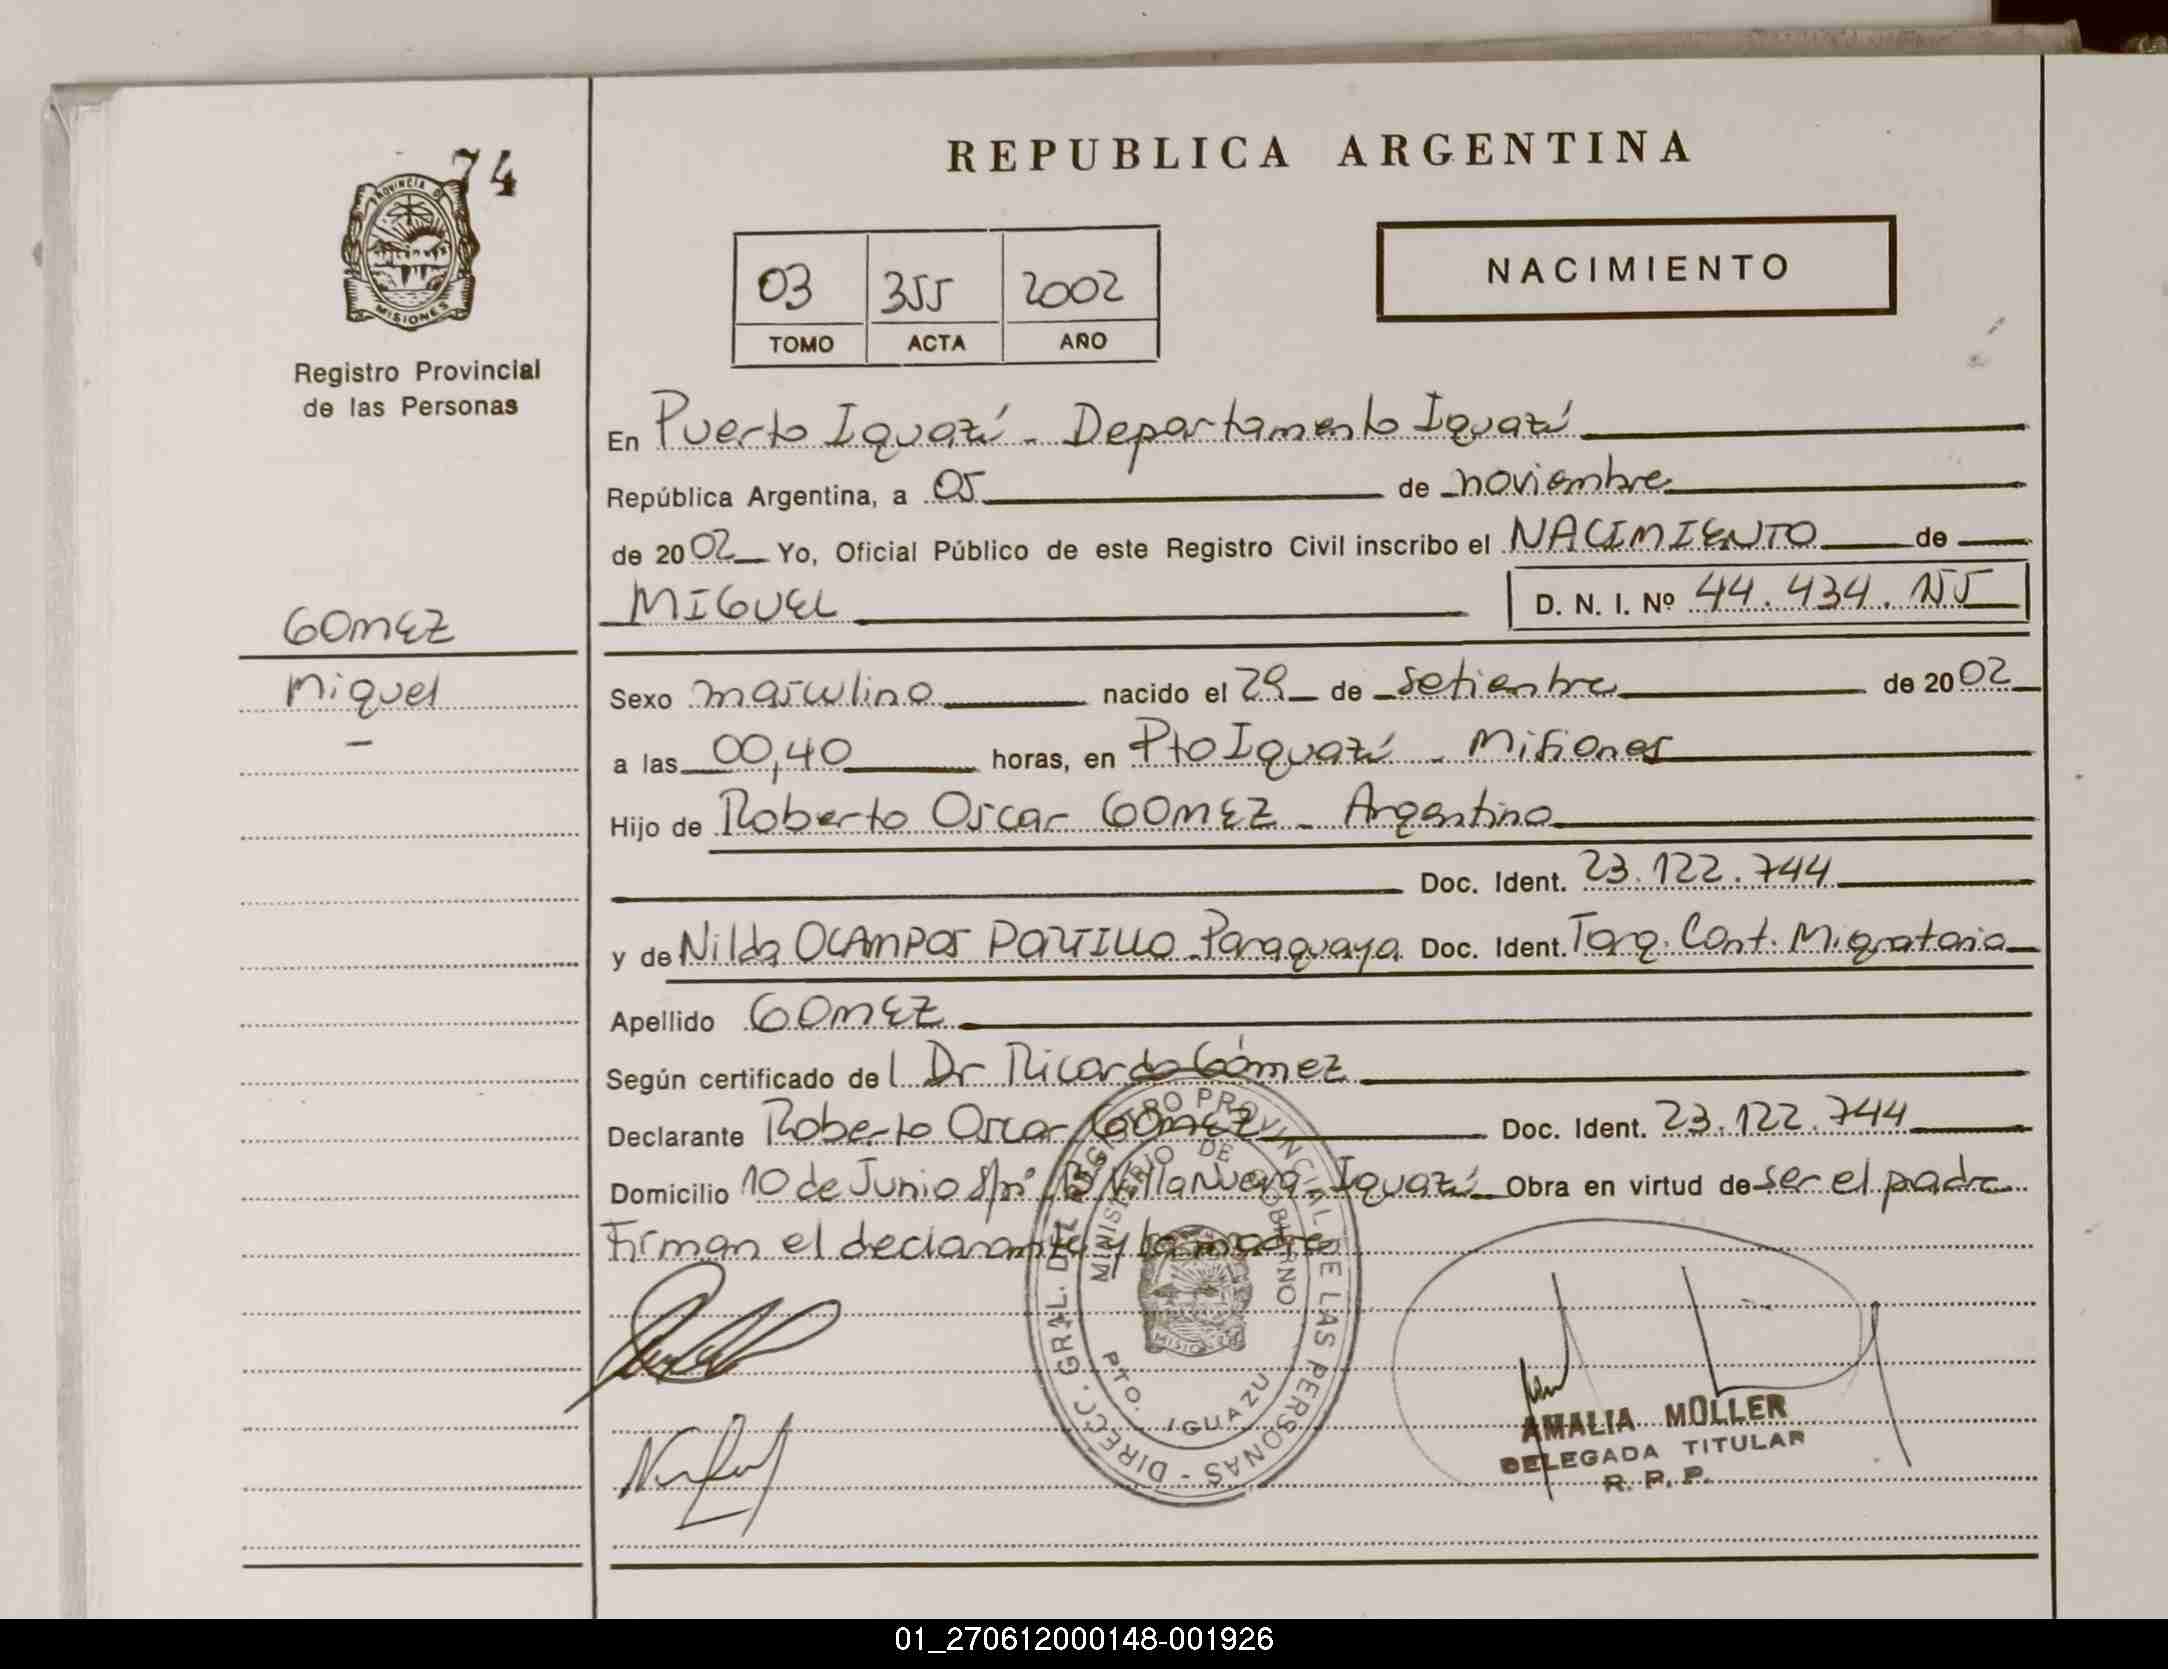 74
PROVINCIA DE
MISIONES
Registro Provincial
de las Personas
GOMEZ
Miguel
REPUBLICA ARGENTINA
03 355 2002
TOMO ACTA AÑO
NACIMIENTO
En Puerto Iguazú - Departamento Iguazú
República Argentina, a 05 de noviembre
de 2002 Yo, Oficial Público de este Registro Civil inscribo el NACIMIENTO de
MIGUEL D. N. I. Nº 44.434.155
Sexo masculino nacido el 29 de setiembre de 2002
a las 00,40 horas, en Pto Iguazú - Misiones
Hijo de Roberto Oscar GOMEZ - Argentino
Doc. Ident. 23.122.744
y de Nilda OCAMPOS PORTILLO - Paraguaya Doc. Ident. Tarj. Cont. Migratoria
Apellido GOMEZ
Según certificado del Dr Ricardo Gómez
Declarante Roberto Oscar GOMEZ Doc. Ident. 23.122.744
Domicilio 10 de Junio s/nº Bº Villa Nueva - Iguazú Obra en virtud de ser el padre
Firman el declarante y la madre
DIRECC. GRAL. DEL REGISTRO PROVINCIAL DE LAS PERSONAS -
MINISTERIO DE GOBIERNO
MISIONES
PTO. IGUAZU
AMALIA MULLER
DELEGADA TITULAR
R. P. P.
01_270612000148-001926